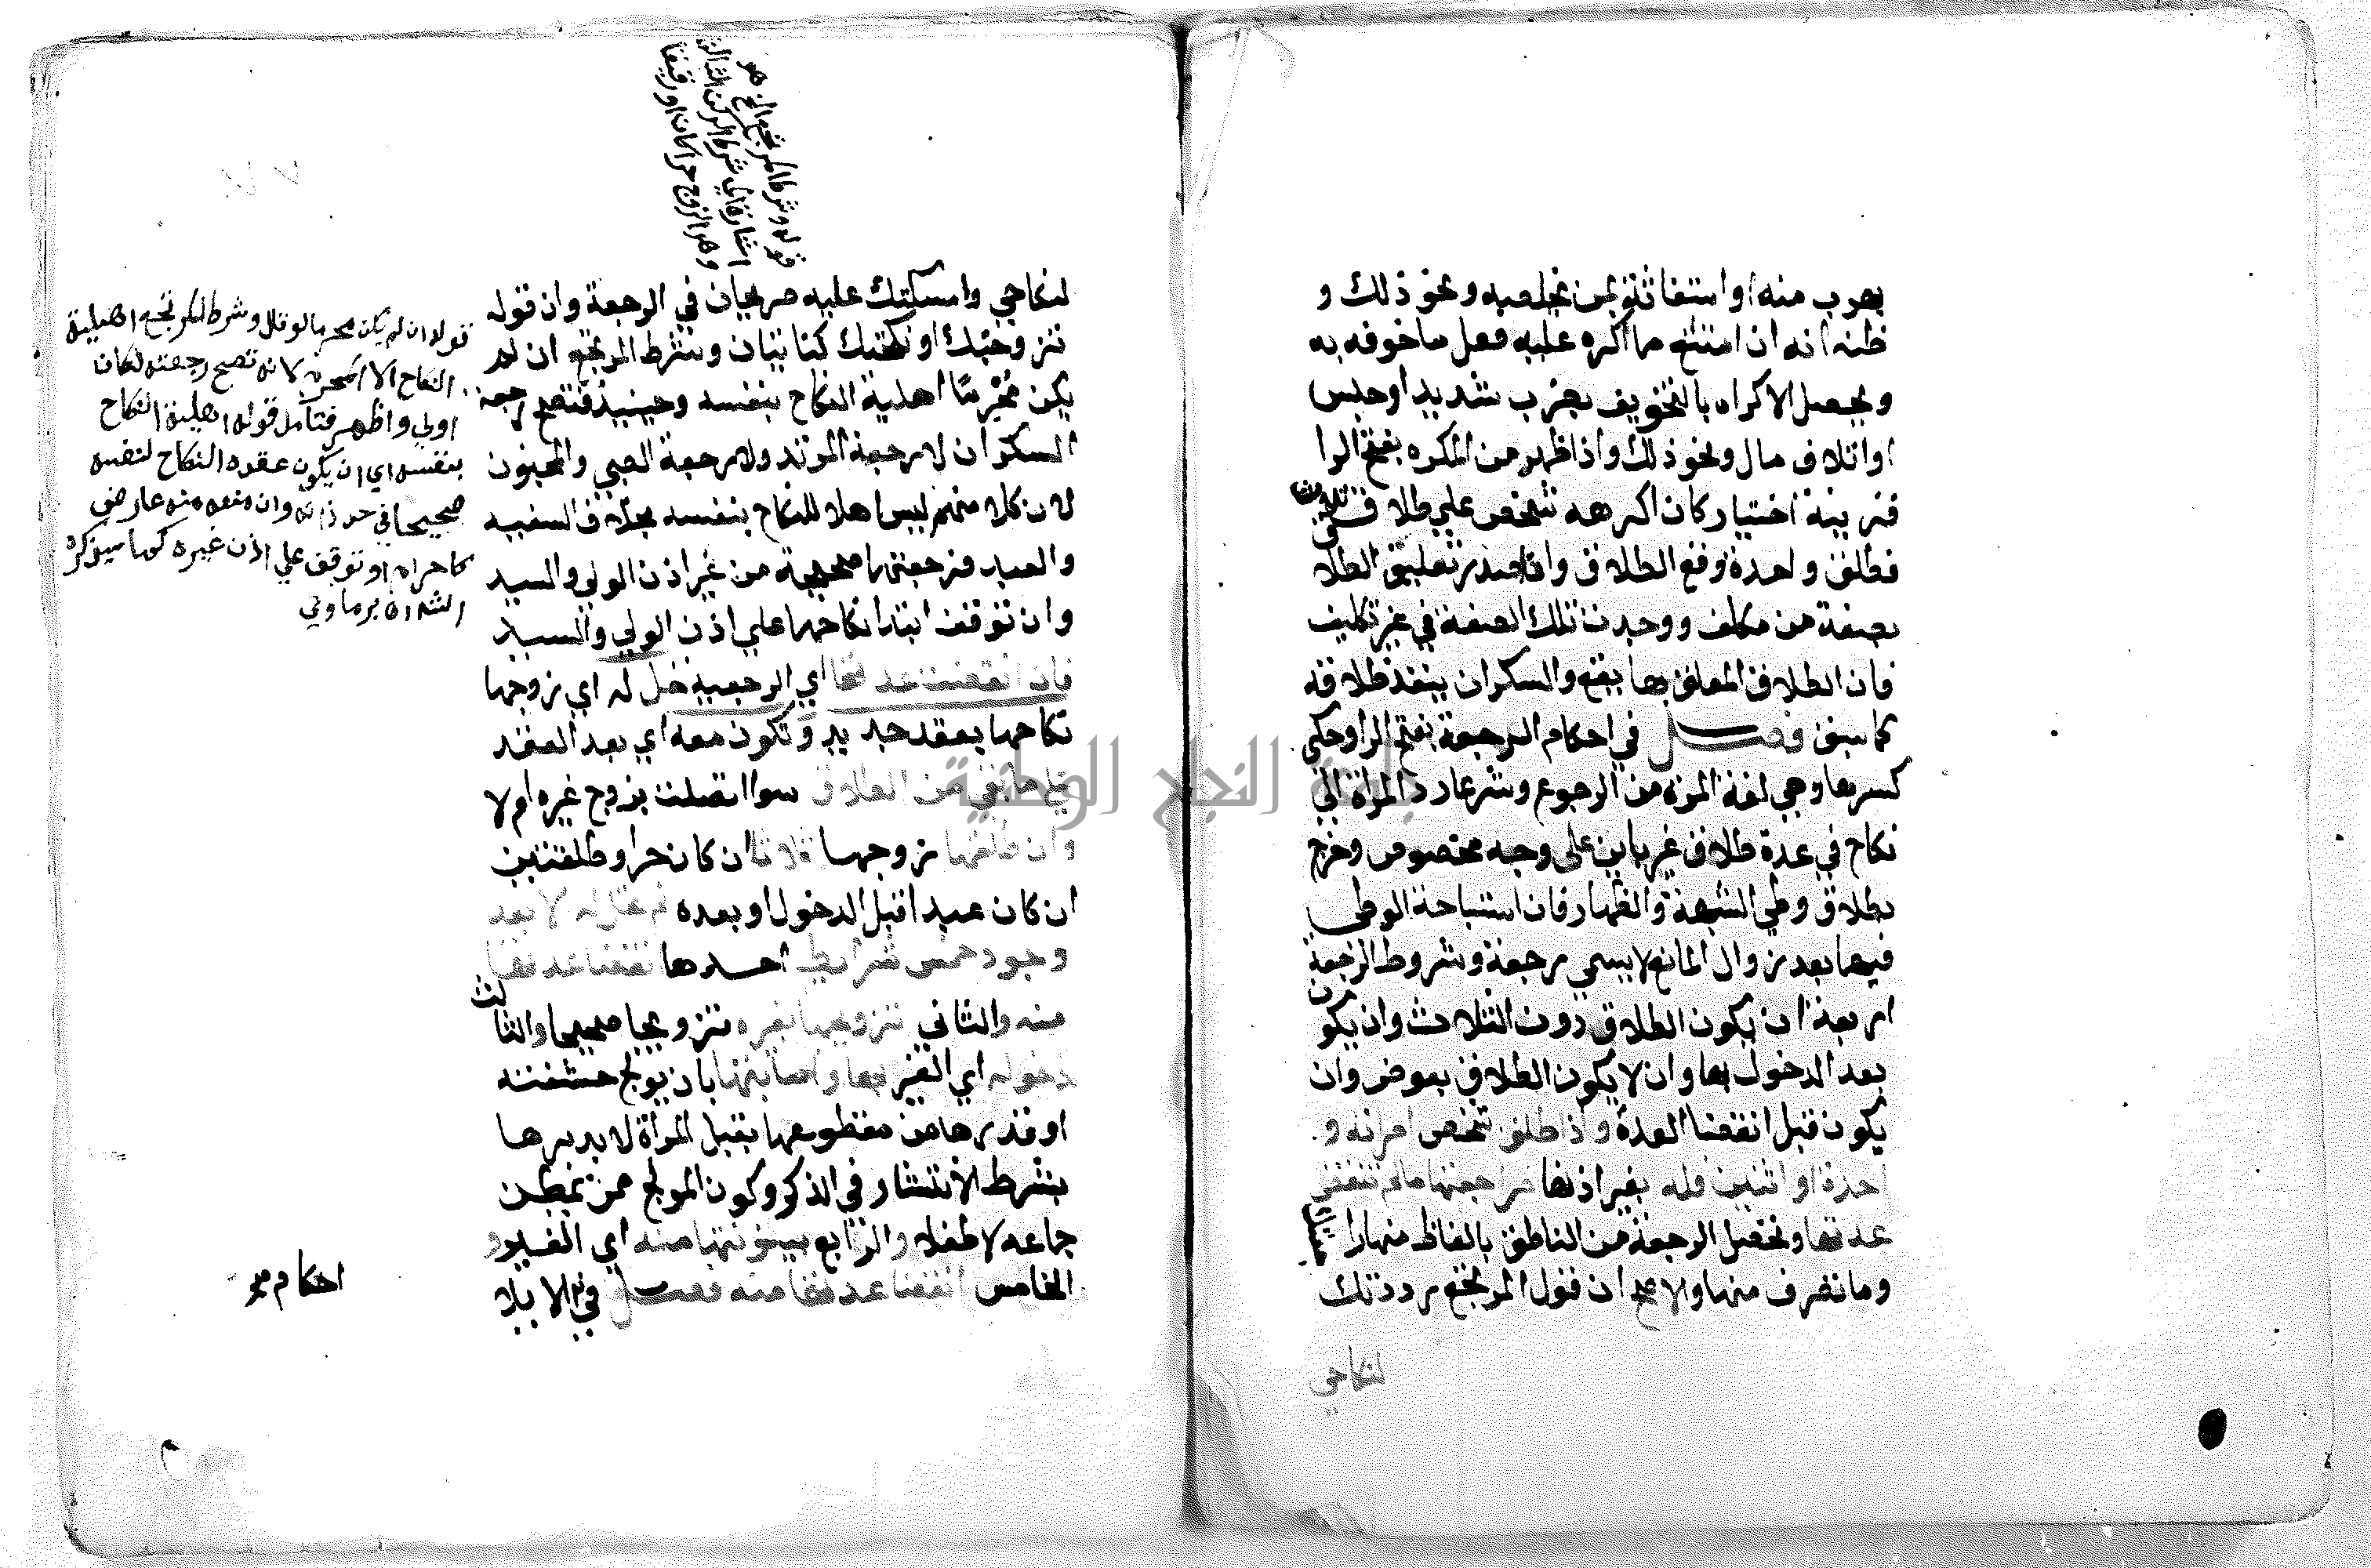 بهرب منه او استغاثة بمن يخلصه ونحو ذلك و
ظنه انه ان امتنع مما اكره عليه فعل ما خوفه به
ويحصل الاكراه بالتخويف بضرب شديد او حبس
او اتلاف مال ونحو ذلك واذا ظهر من المكره بفتح الرا
قرينة اختيار كان اكرهه شخص علي طلاق ثلاث
فطلق واحدة وقع الطلاق واذا صدر تعليق الطلا
بصفة من مكلف ووجدت تلك الصفة في غير تكليف
فان الطلاق المعلق بها يقع والسكران ينفذ طلاقه
كما سبق فصل في احكام الرجعة بفتح الرا وحكي
كسرها وهي لغة المرة من الرجوع وشرعا رد المراة الي
نكاح في عدة طلاق غير باين على وجه مخصوص وخرج
بطلاق وطي الشبهة والظهار فان استباحة الوطي
فيهما بعد زوال المانع لا يسمي رجعة وشروط الرجعة
اربعة ان يكون الطلاق دون الثلاث وان يكون
بعد الدخول بها وان لا يكون الطلاق بعوض وان
يكون قبل انقضا العدة واذا طلق شخص امراته و
احدة او اثنين فله بغير اذنها مراجعتها مالم تنقض
عدتها وتحصل الرجعة من الناطق بالفاظ منها راجعتك
وما تصرف منها والاصح ان قول المرتجع رددتك
لنكاحي
قوله وشرط المرتجع الخ هو
اشارة الي شرط الركن الثالث
وهو الزوج حرا كان او رقيقا
لنكاحي وامسكتك عليه صريحان في الرجعة وان قوله
تزوجتك او نكحتك كنايتان وشرط المرتجع ان لم
يكن محرما اهلية النكاح بنفسه وحينيذ فتصح رجعة
السكران لا رجعة المرتد ولا رجعة الصبي والمجنون
لان كلا منهم ليس اهلا للنكاح بنفسه بخلاف السفيه
والعبد فرجعتهما صحيحة من غير اذن الولي والسيد
وان توقف ابتدا نكاحهما علي اذن الولي والسيد
فان انقضت عدتها اي الرجعية حل له اي زوجها
نكاحها بعقد جديد وتكون معه اي بعد العقد
علي ما بقي من الطلاق سوا اتصلت بزوج غيره ام لا
وان طلقها زوجها ثلاثا ان كان حرا وطلقتين
ان كان عبدا قبل الدخول او بعده لم تحل له الا بعد
وجود خمس شرايط احدها انقضا عدتها
منه والثاني تزويجها بغيره تزويجا صحيحا والثالث
دخوله اي الغير بها واصابتها بان يولج حشفته
او قدرها من مقطوعها بقبل المراة لا بدبرها
بشرط الانتشار في الذكر وكون المولج ممن يمكن
جماعه لا طفلا والرابع بينونتها منه اي الغير و
الخامس انقضا عدتها منه فصل في الايلا
قوله ان لم يكن محرما لو قال وشرط المرتجع اهلية
النكاح الا المحرم لانه تصح رجعته لكان
اولي واظهر فتامل قوله اهلية النكاح
بنفسه اي ان يكون عقده النكاح لنفسه
صحيحا في حد ذاته وان منعه منه عارض
كاحرام او توقف علي اذن غيره كما سيذكره
الشارح برماوي